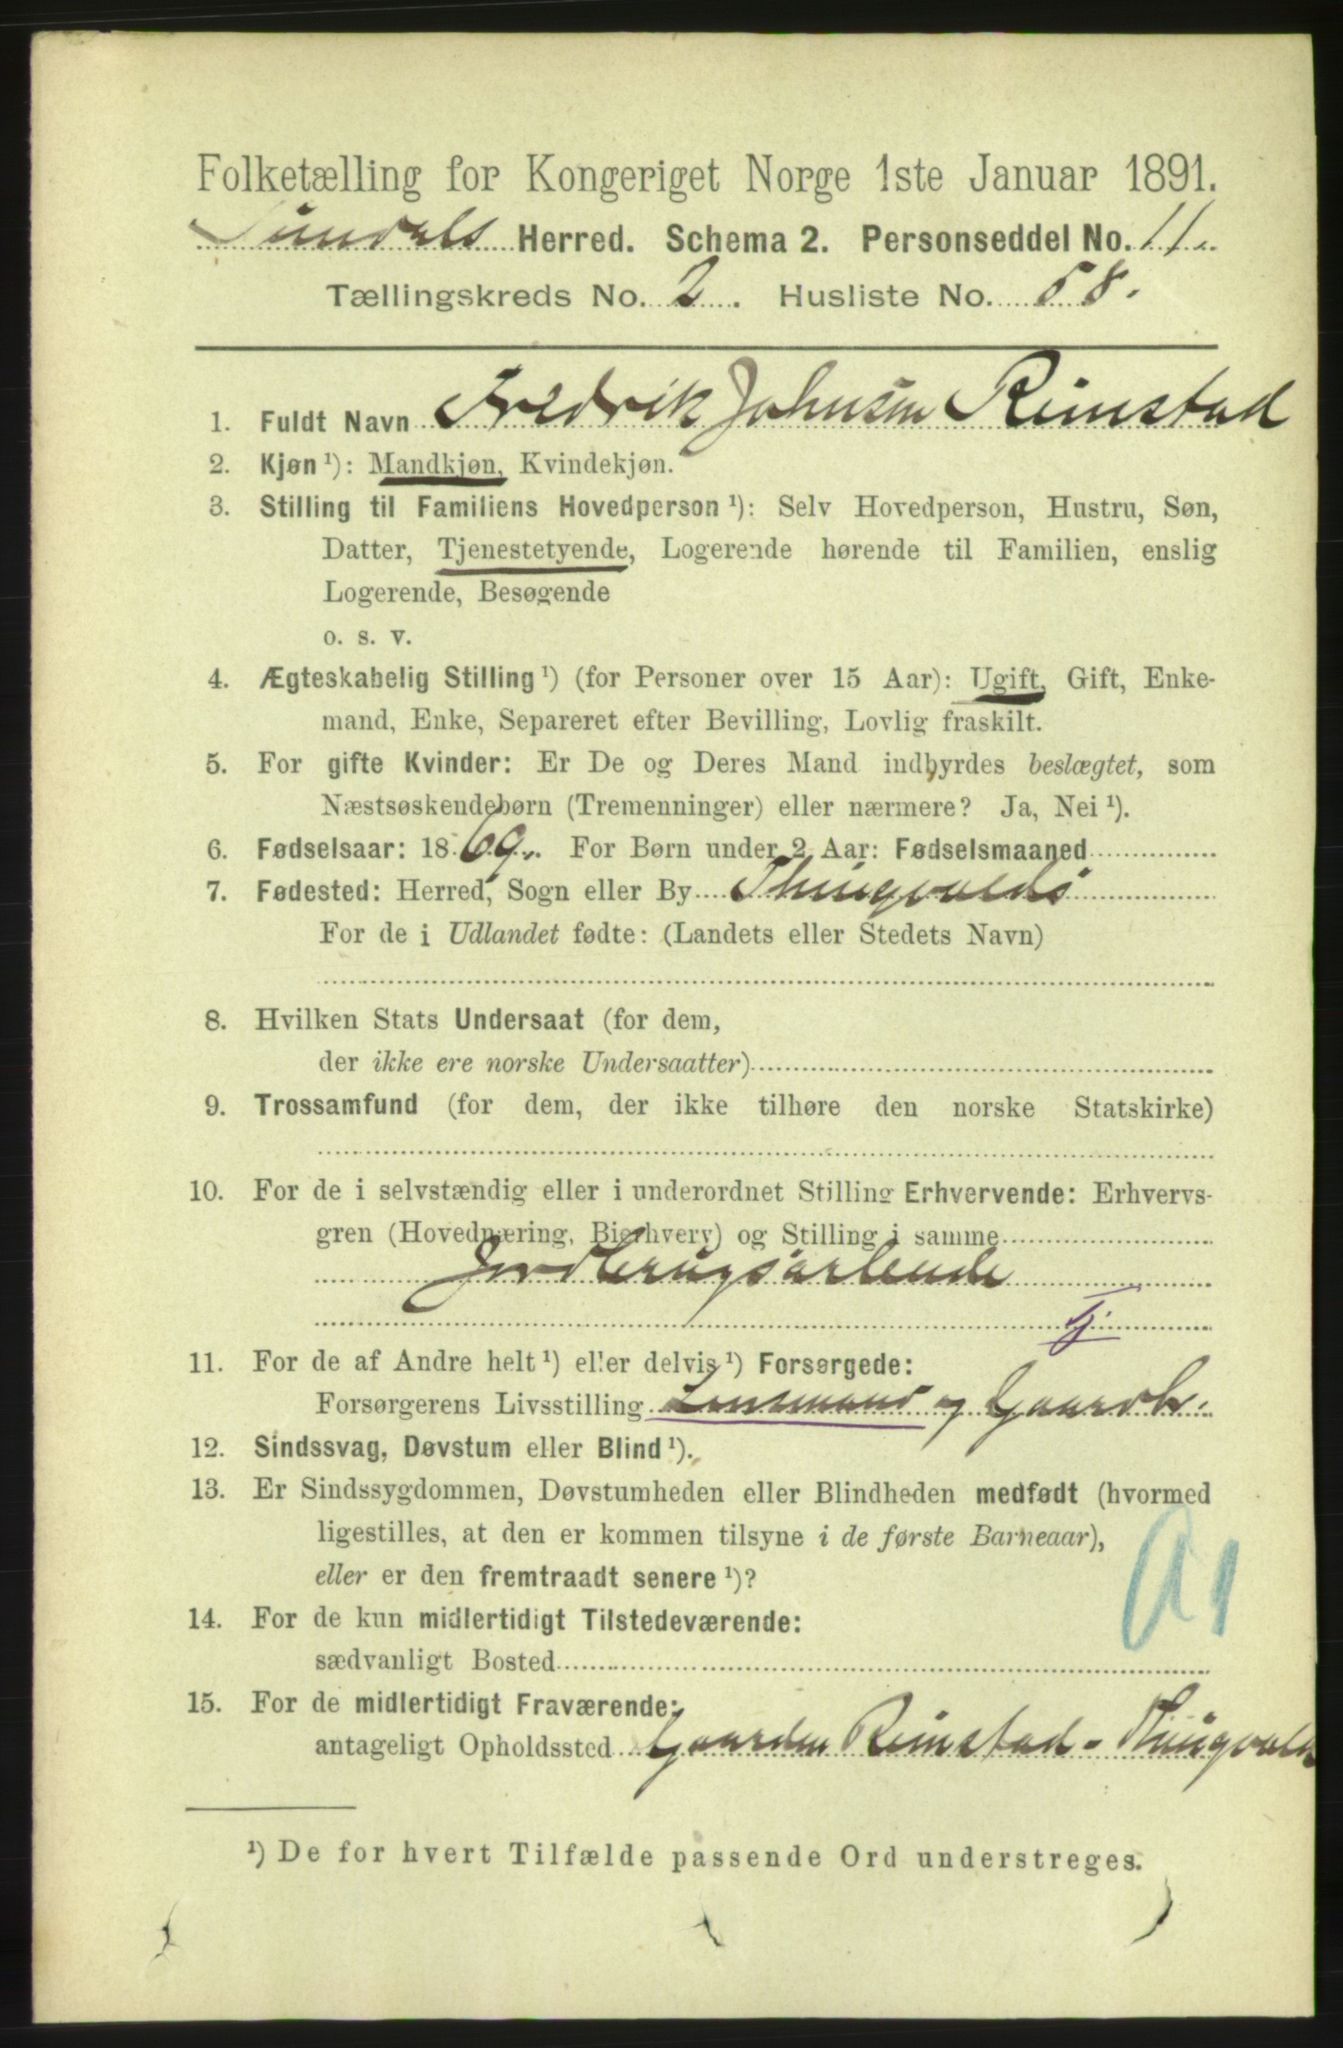 Folketælling for Kongeriget Norge 1ste Januar 1891.
Sundals Herred. Schema 2. Personseddel No. 11.
Tællingskreds No. 2. Husliste No. 58.
1. Fuldt Navn Fredrik Johnsen Rimstad
2. Kjøn ¹): Mandkjøn, Kvindekjøn.
3. Stilling til Familiens Hovedperson ¹): Selv Hovedperson, Hustru, Søn,
Datter, Tjenestetyende, Logerende hørende til Familien, enslig
Logerende, Besøgende
o. s. v.
4. Ægteskabelig Stilling ¹) (for Personer over 15 Aar): Ugift, Gift, Enke-
mand, Enke, Separeret efter Bevilling, Lovlig fraskilt.
5. For gifte Kvinder: Er De og Deres Mand indbyrdes beslægtet, som
Næstsøskendebørn (Tremenninger) eller nærmere? Ja, Nei ¹).
6. Fødselsaar: 1869. For Børn under 2 Aar: Fødselsmaaned
7. Fødested: Herred, Sogn eller By Thingvolds
For de i Udlandet fødte: (Landets eller Stedets Navn)
8. Hvilken Stats Undersaat (for dem,
der ikke ere norske Undersaatter)
9. Trossamfund (for dem, der ikke tilhøre den norske Statskirke)
10. For de i selvstændig eller i underordnet Stilling Erhvervende: Erhvervs-
gren (Hovednæring, Bierhverv) og Stilling i samme
Jordbrugsarbeide
Tj.
11. For de af Andre helt ¹) eller delvis ¹) Forsørgede:
Forsørgerens Livsstilling Lensmand og Gaardbr.
12. Sindssvag, Døvstum eller Blind ¹).
13. Er Sindssygdommen, Døvstumheden eller Blindheden medfødt (hvormed
ligestilles, at den er kommen tilsyne i de første Barneaar),
eller er den fremtraadt senere ¹)?
A1
14. For de kun midlertidigt Tilstedeværende:
sædvanligt Bosted
15. For de midlertidigt Fraværende:
antageligt Opholdssted Gaarden Rimstad - Thingvolds
¹) De for hvert Tilfælde passende Ord understreges.